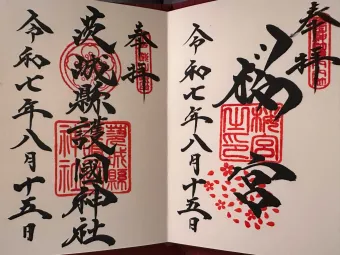 奉拝
櫻宮
令和七年八月十五日
奉拝
茨城縣護國神社
令和七年八月十五日